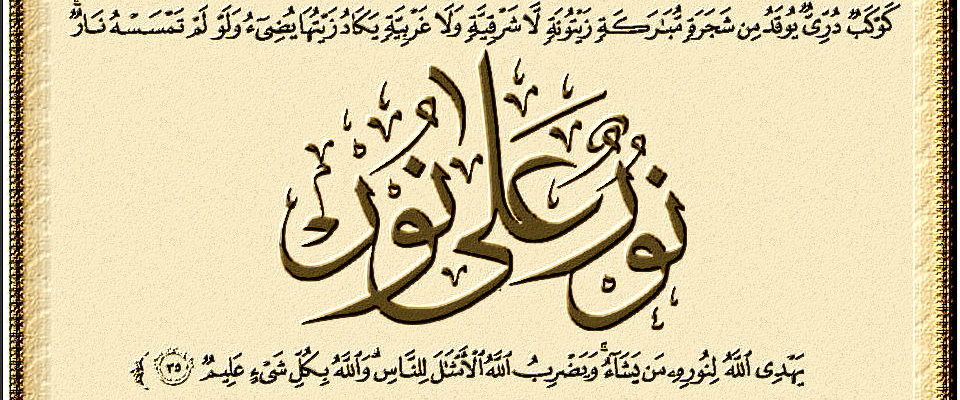 كَوْكَبٌ دُرِّيٌّ يُوقَدُ مِن شَجَرَةٍ مُّبَـٰرَكَةٍ زَيْتُونَةٍ لَّا شَرْقِيَّةٍ وَلَا غَرْبِيَّةٍ يَكَادُ زَيْتُهَا يُضِىٓءُ وَلَوْ لَمْ تَمْسَسْهُ نَارٌ
نُورٌ عَلَىٰ نُورٍ
يَهْدِى ٱللَّهُ لِنُورِهِۦ مَن يَشَآءُ ۚ وَيَضْرِبُ ٱللَّهُ ٱلْأَمْثَـٰلَ لِلنَّاسِ ۗ وَٱللَّهُ بِكُلِّ شَىْءٍ عَلِيمٌ ﴿٣٥﴾